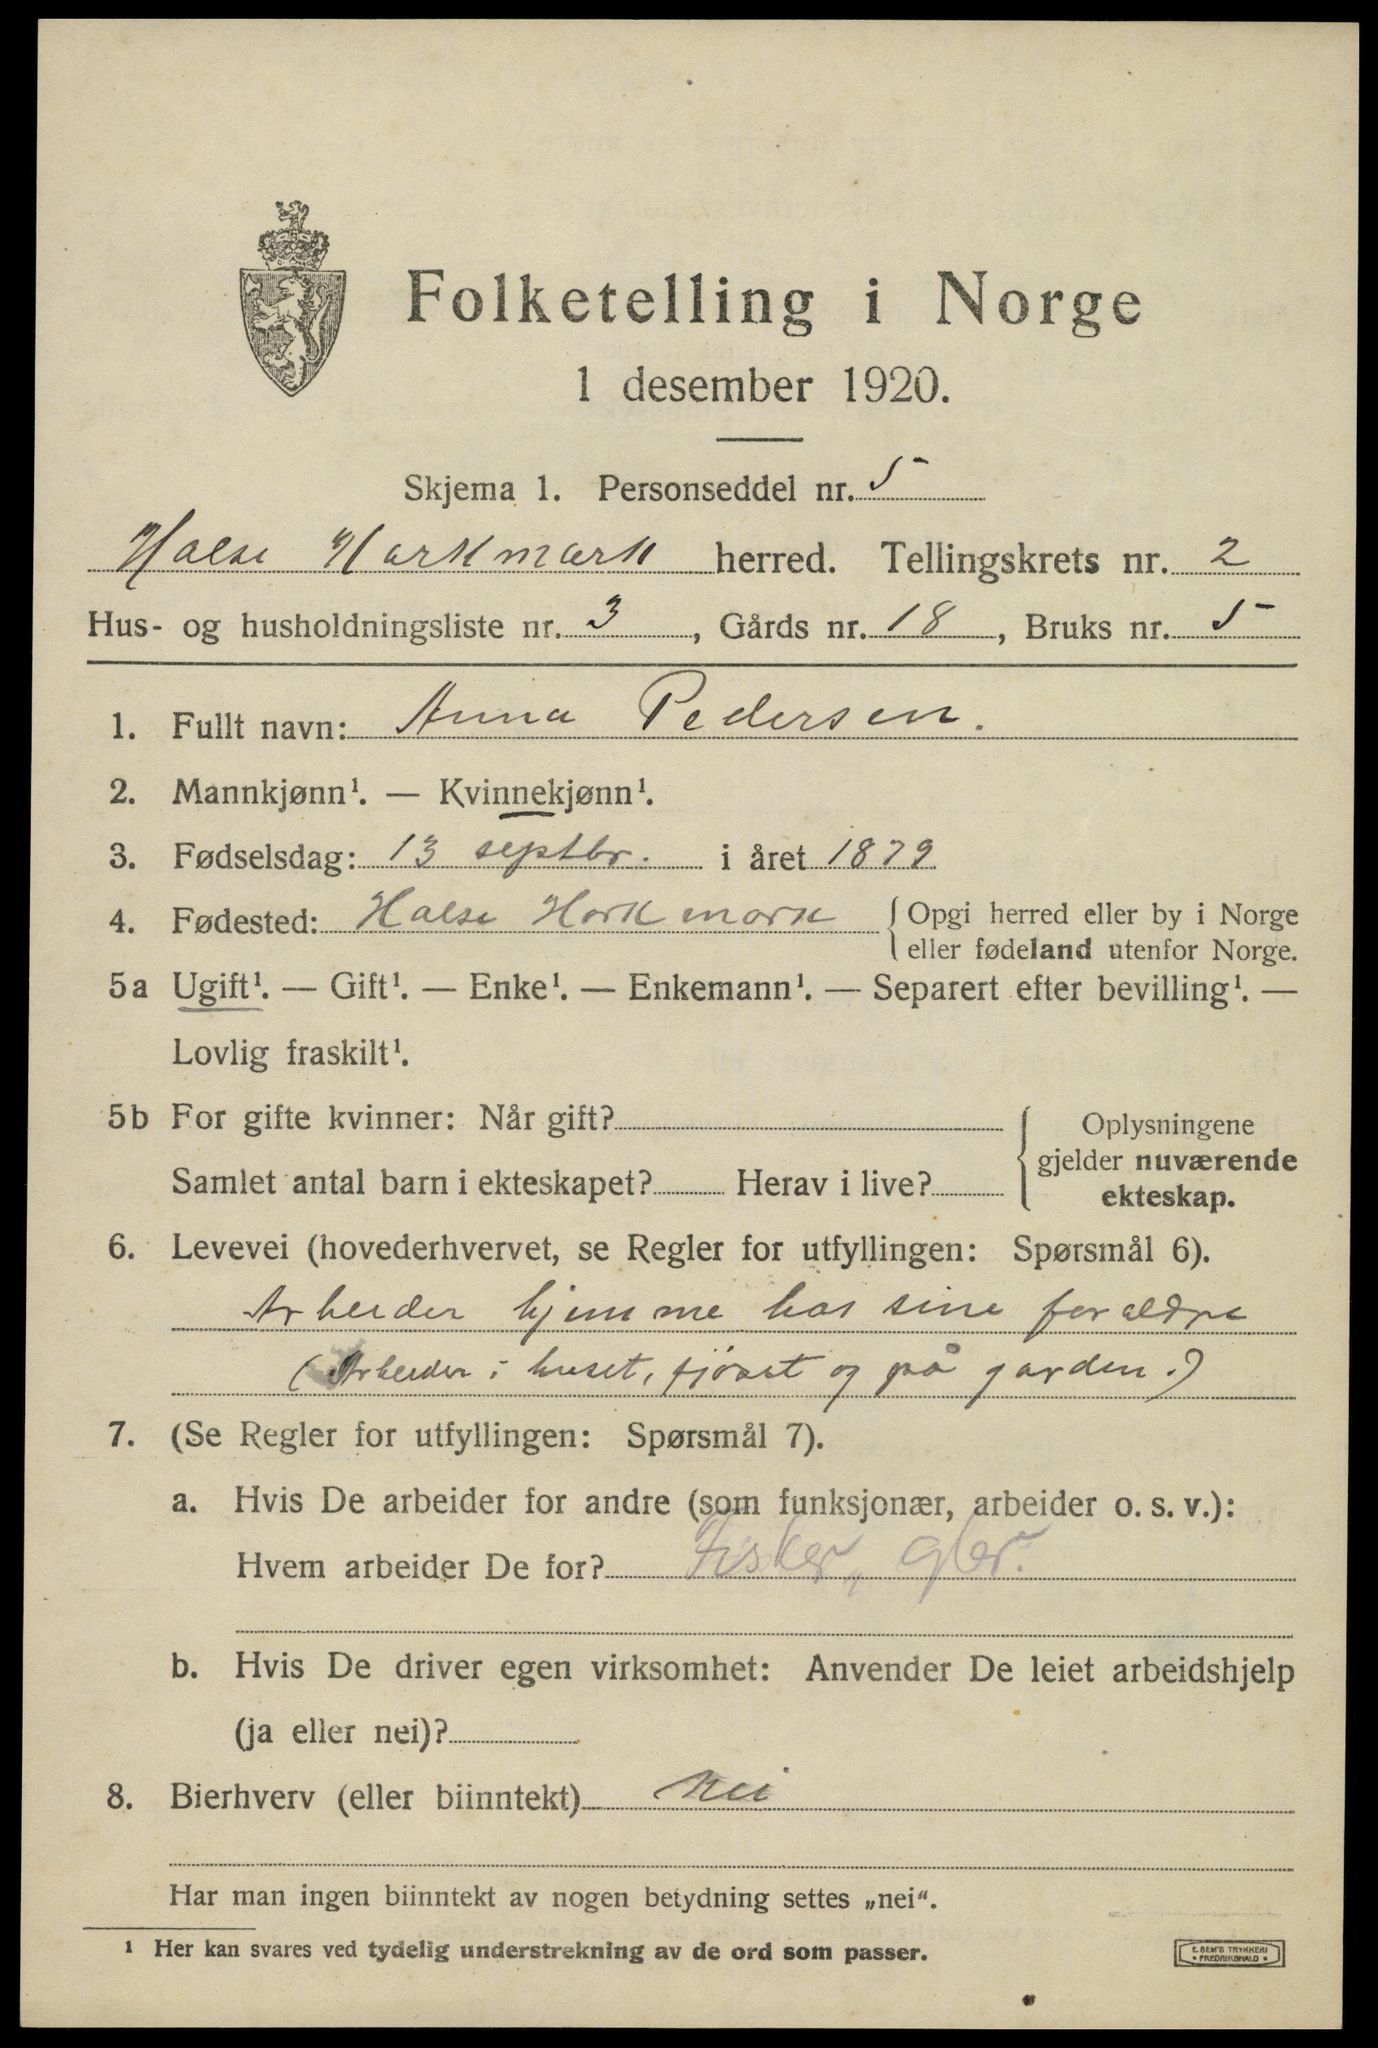 Folketelling i Norge
1 desember 1920.
Skjema 1. Personseddel nr. 5
Halse Harkmark herred. Tellingskrets nr. 2
Hus- og husholdningsliste nr. 3, Gårds nr. 18, Bruks nr. 5
1. Fullt navn: Anna Pedersen.
2. Mannkjønn¹. — Kvinnekjønn¹.
3. Fødselsdag: 13 septbr. i året 1879
4. Fødested: Halse Harkmark { Opgi herred eller by i Norge
eller fødeland utenfor Norge.
5a Ugift¹. — Gift¹. — Enke¹. — Enkemann¹. — Separert efter bevilling¹. —
Lovlig fraskilt¹.
5b For gifte kvinner: Når gift?
Samlet antal barn i ekteskapet? Herav i live?
Oplysningene
gjelder nuværende
ekteskap.
6. Levevei (hovederhvervet, se Regler for utfyllingen: Spørsmål 6).
Arbeider hjemme hos sine foræpldre
(Arbeider i huset, fjöset og på garden.)
7. (Se Regler for utfyllingen: Spørsmål 7).
a. Hvis De arbeider for andre (som funksjonær, arbeider o. s. v.):
Hvem arbeider De for? Fisker, gbr.
b. Hvis De driver egen virksomhet: Anvender De leiet arbeidshjelp
(ja eller nei)?
8. Bierhverv (eller biinntekt) nei
Har man ingen biinntekt av nogen betydning settes „nei“.
¹ Her kan svares ved tydelig understrekning av de ord som passer.
E. SEM'S TRYKKERI
• FREDRIKSHALD •